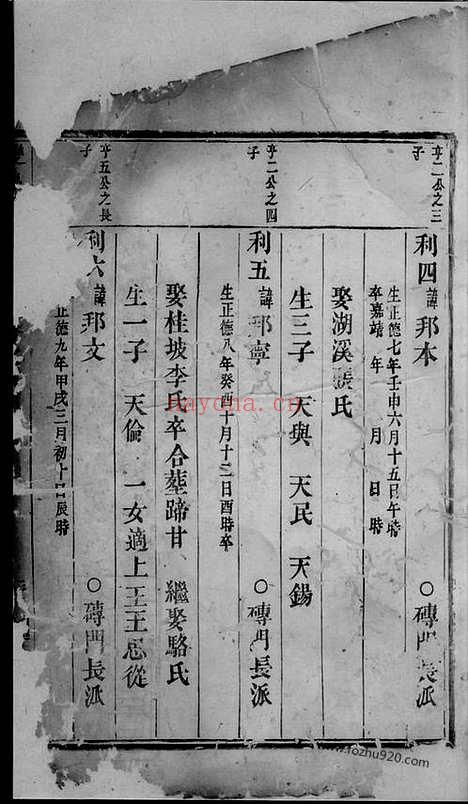 亨二公之三子
利四 諱邦本 ○磚門長派
生正德七年壬申六月十五日午時
卒嘉靖 年 月 日 時
娶湖溪張氏
生三子 天與 天民 天錫
亨二公之四子
利五 諱邦寧 ○磚門長派
生正德八年癸酉十月十二日酉時卒
娶桂坡李氏卒合塟蹄甘 繼娶駱氏
生一子 天倫 一女適上王王忌從
亨五公之長子
利六 諱邦文 ○磚門長派
正德九年甲戌三月初十日辰時
nayona.cn
www.fozhu920.com